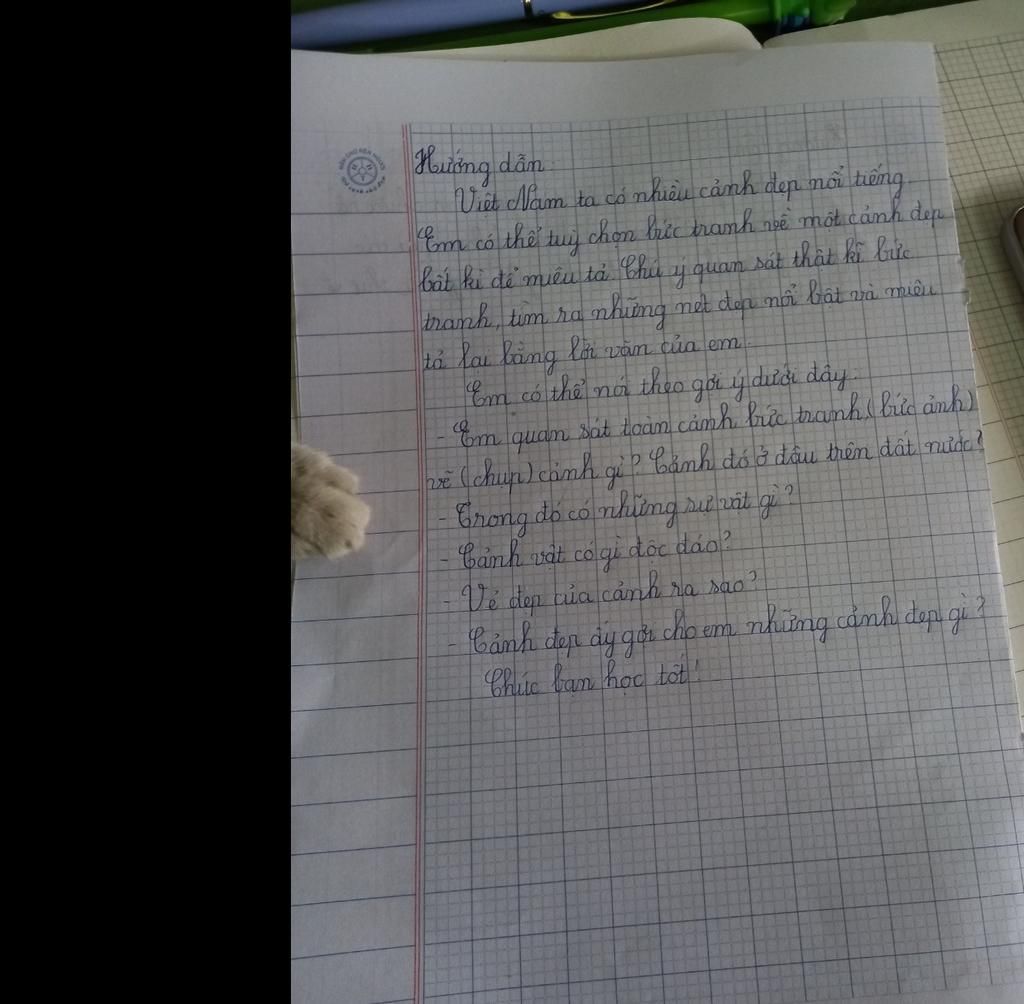 Hướng dẫn
Việt Nam ta có nhiều cảnh đẹp nổi tiếng
Em có thể tuỳ chọn bức tranh về một cảnh đẹp
bất kì để miêu tả. Chú ý quan sát thật kĩ bức
tranh, tìm ra những nét đẹp nổi bật và miêu
tả lại bằng lời văn của em.
Em có thể nói theo gợi ý dưới đây.
- Em quan sát toàn cảnh bức tranh (bức ảnh)
vẽ (chụp) cảnh gì? Cảnh đó ở đâu trên đất nước?
- Trong đó có những sự vật gì?
- Cảnh vật có gì độc đáo?
- Vẻ đẹp của cảnh ra sao?
- Cảnh đẹp ấy gợi cho em những cảnh đẹp gì?
Chúc bạn học tốt!